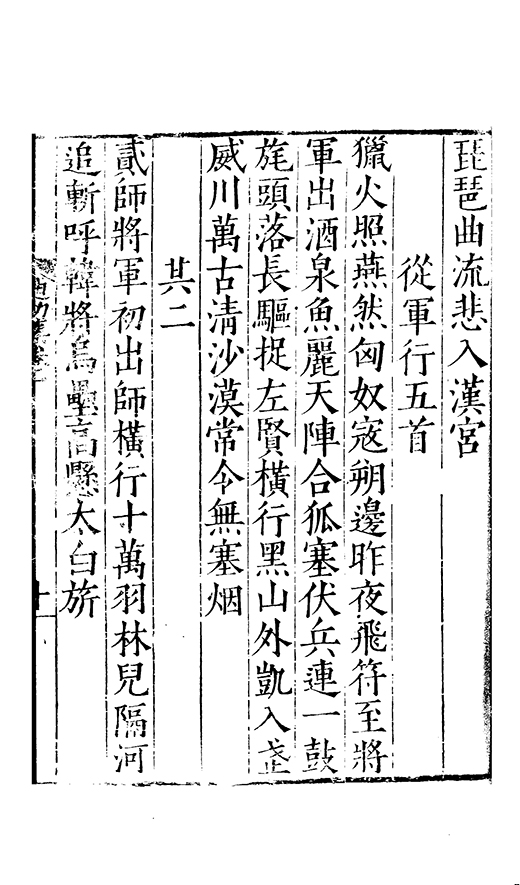 琵琶曲流悲入漢宮
從軍行五首
獵火照燕然匈奴寇朔邊昨夜飛符至將
軍出酒泉魚麗天陣合狐塞伏兵連一鼓
旄頭落長驅捉左賢橫行黑山外凱入盞
威川萬古清沙漠常令無塞烟
其二
貳師將軍初出師橫行十萬羽林兒隔河
追斬呼韓將烏壘高懸太白旂
十一